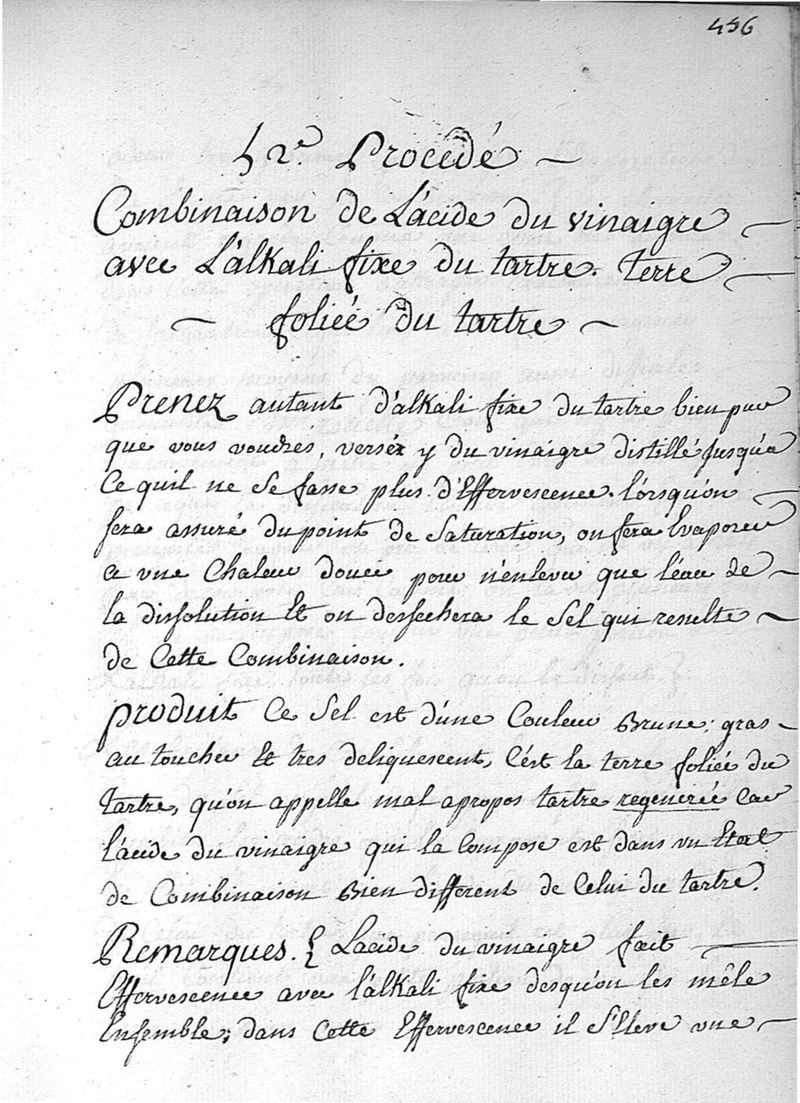 456
52.e Procedé
Combinaison de L'acide du vinaigre
avec L'alkali fixe du tartre. Terre
foliée du tartre
Prenez autant d'alkali fixe du tartre bien pur
que vous voudres, versez y du vinaigre distillé jusqu'a
Ce quil ne se fasse plus d'Effervescence. lorsqu'on
sera assuré du point de Saturation, on fera Evaporer
a vne Chaleur douce pour n'enlever que l'eau de
la dissolution Et on dessechera le Sel qui resulte
de Cette Combinaison.
produit Ce Sel est d'une Couleur Brune; gras
au toucher Et tres deliquescent, C'est la terre foliée du
Tartre, qu'on appelle mal apropos tartre regenerée Car
l'acide du vinaigre qui la Compose est dans vn Etat
de Combinaison Bien different de Celui du tartre.
Remarques. { L'acide du vinaigre fait
Effervescence avec l'alkali fixe desqu'on les mêle
Ensemble; dans Cette Effervescence il S'Eleve vne